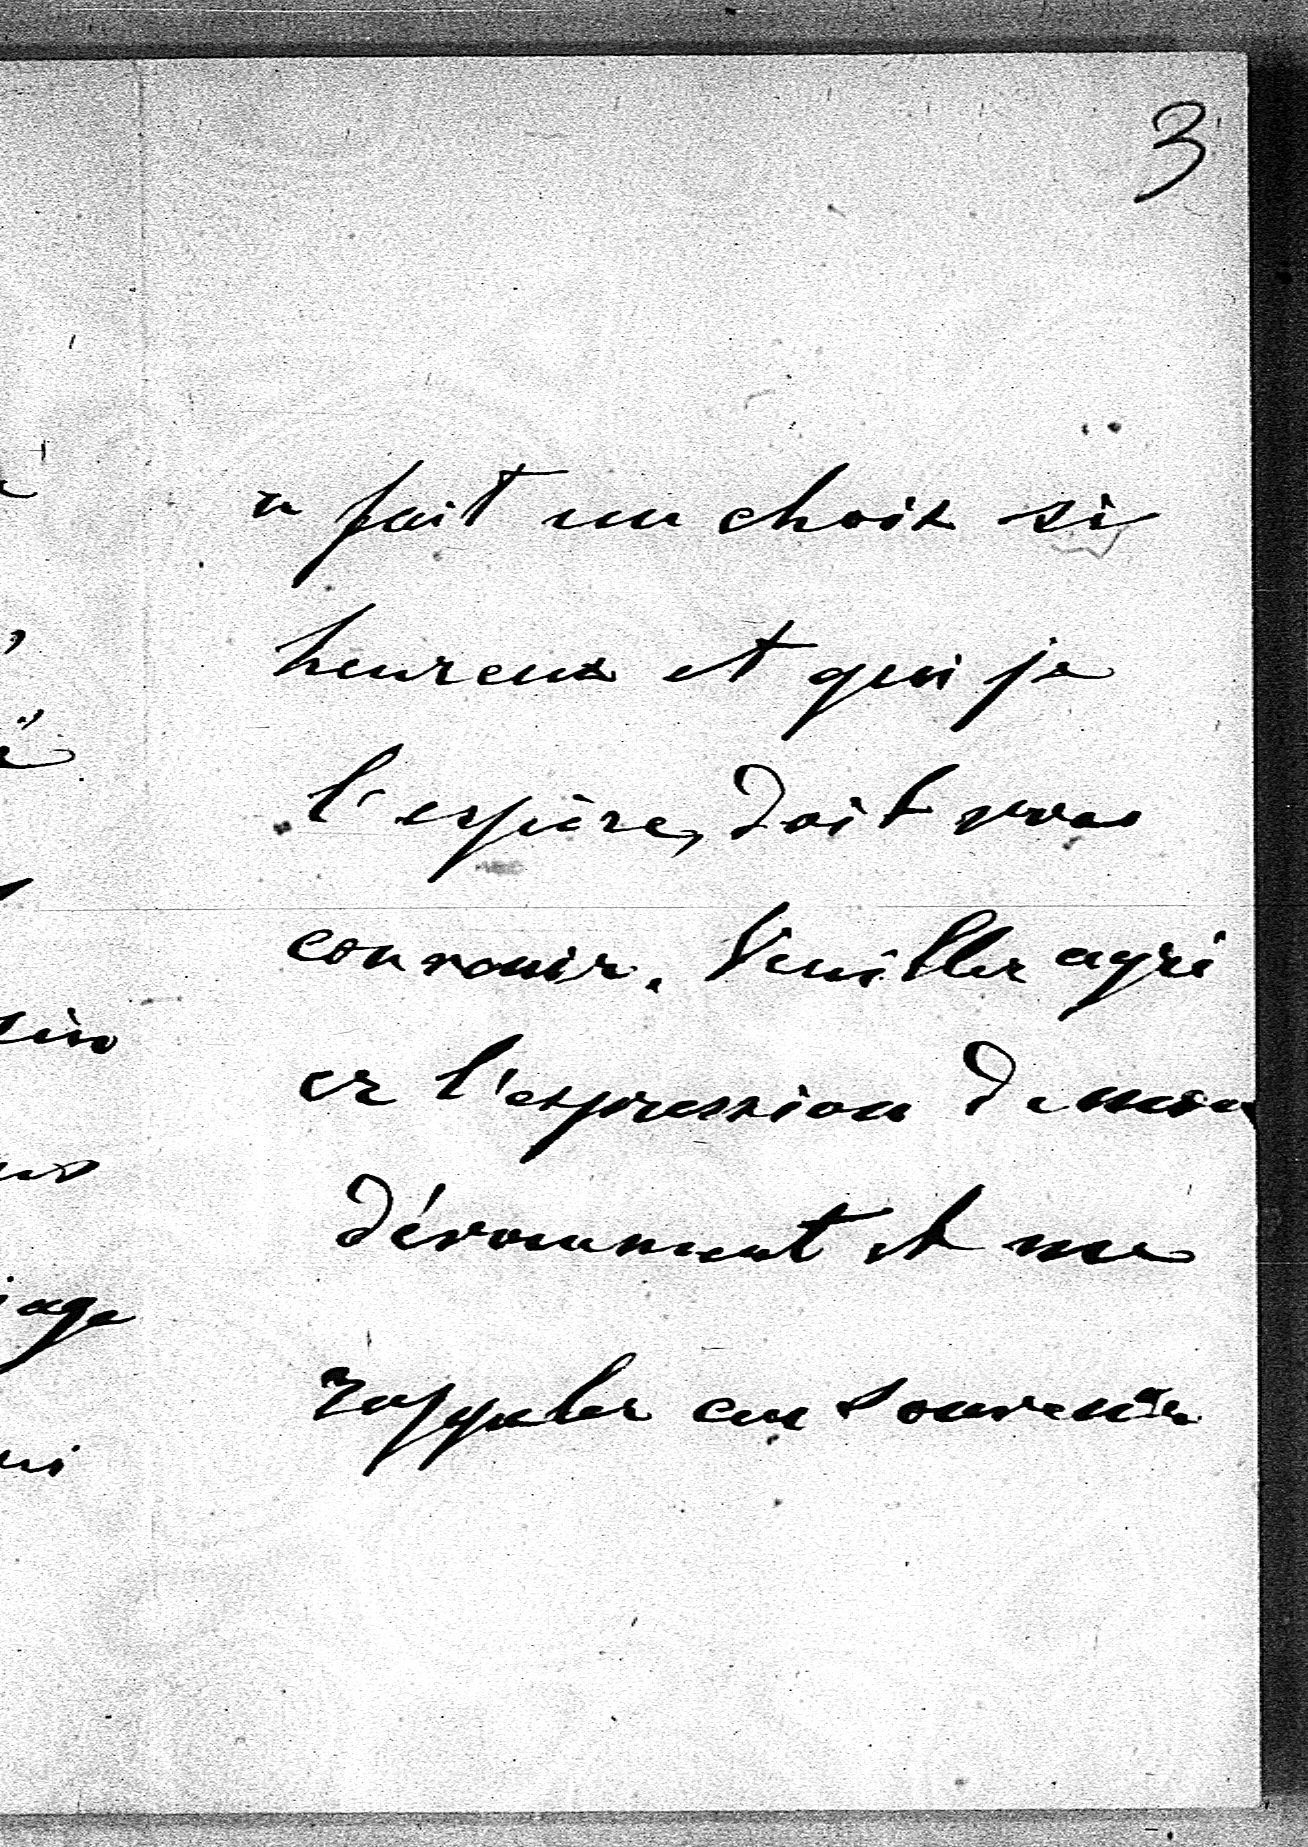 3
a fait un choix si
heureux et qui je
l'espère, doit vous
convenir. Veuillez agré
er l'expression de mon
dévouement et me
rappeler au souvenir